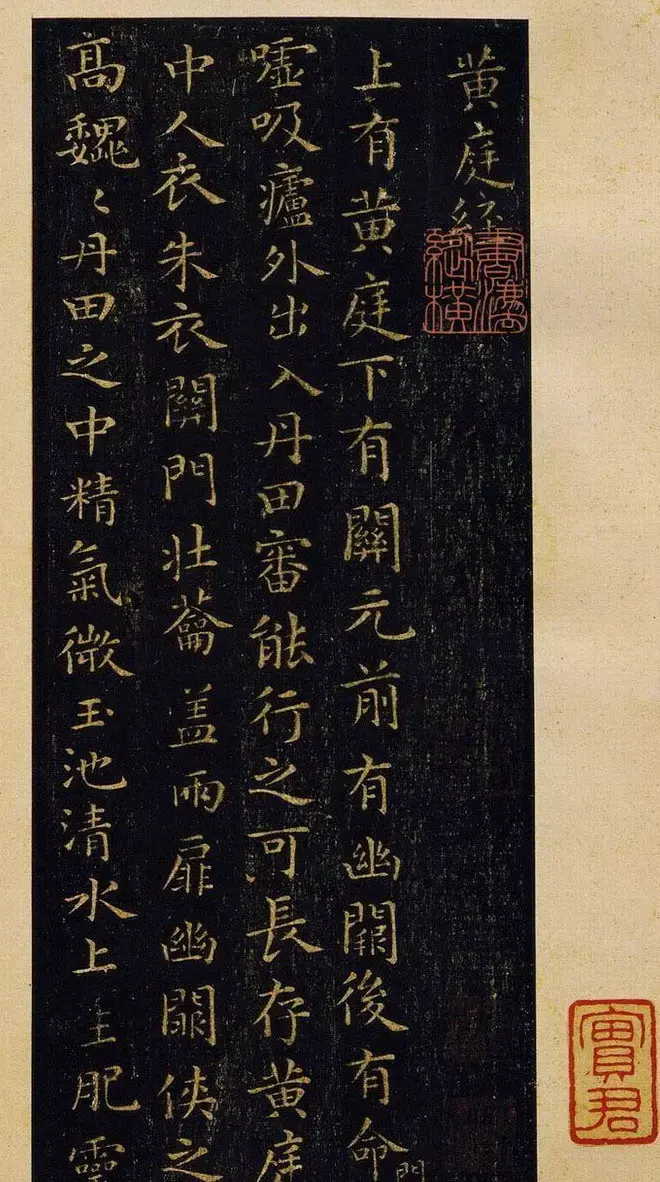 黄庭經
上有黄庭下有關元前有幽闕後有命門
嘘吸廬外出入丹田審能行之可長存黄庭
中人衣朱衣關門壯蘥盖兩扉幽闕俠之
高巍〻丹田之中精氣微玉池清水上生肥靈
實君